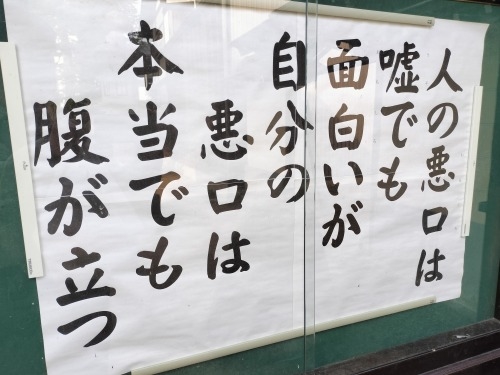 人の悪口は
嘘でも
面白いが
自分の
悪口は
本当でも
腹が立つ